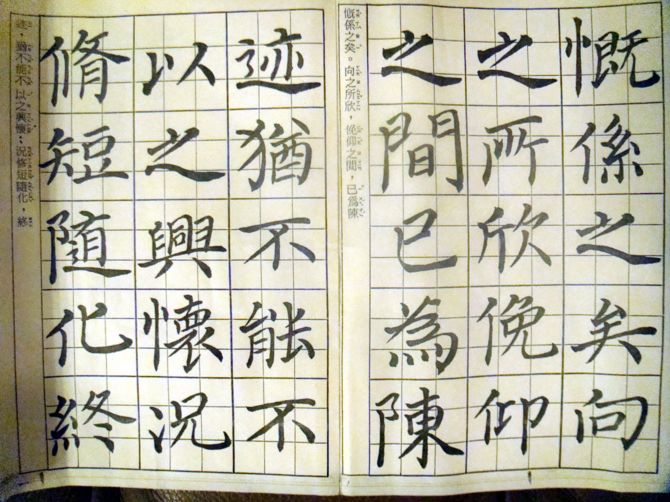 慨係之矣向
之所欣俛仰
之間已為陳
慨係之矣。向之所欣，俛仰之間，已為陳
迹猶不能不
以之興懷況
脩短隨化終
迹，猶不能不以之興懷；況修短隨化，終